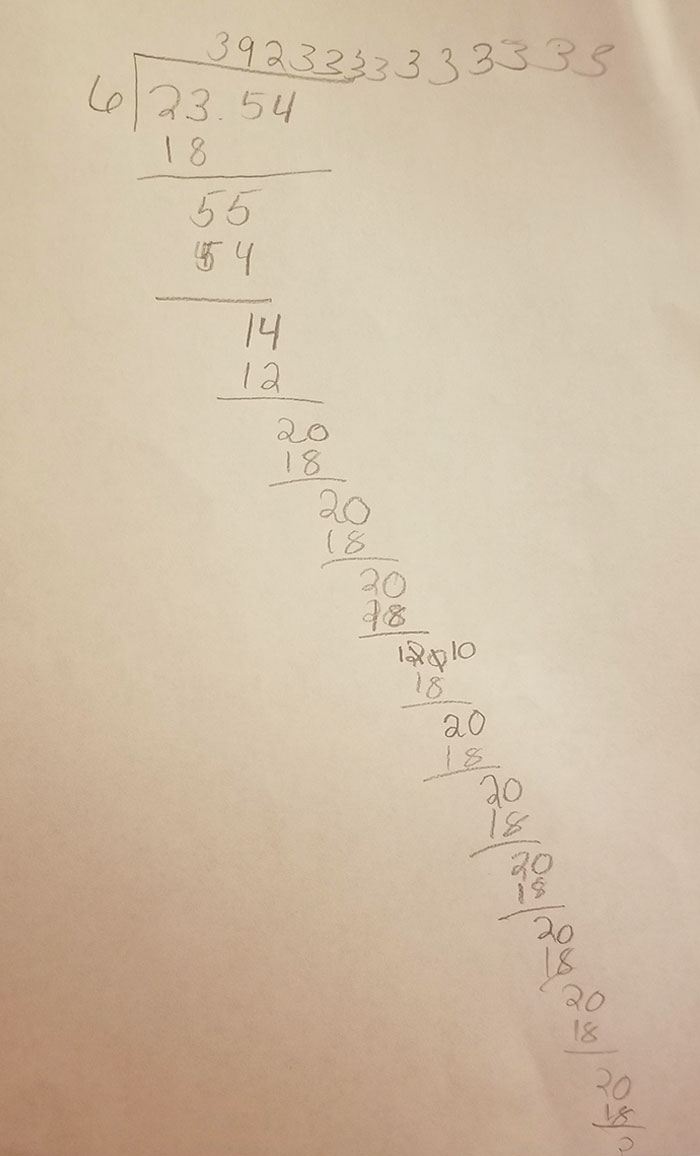 3923333333333
6 23.54
18
55
54
14
12
20
18
20
18
20
18
10
18
20
18
20
18
20
18
20
18
20
18
20
18
2